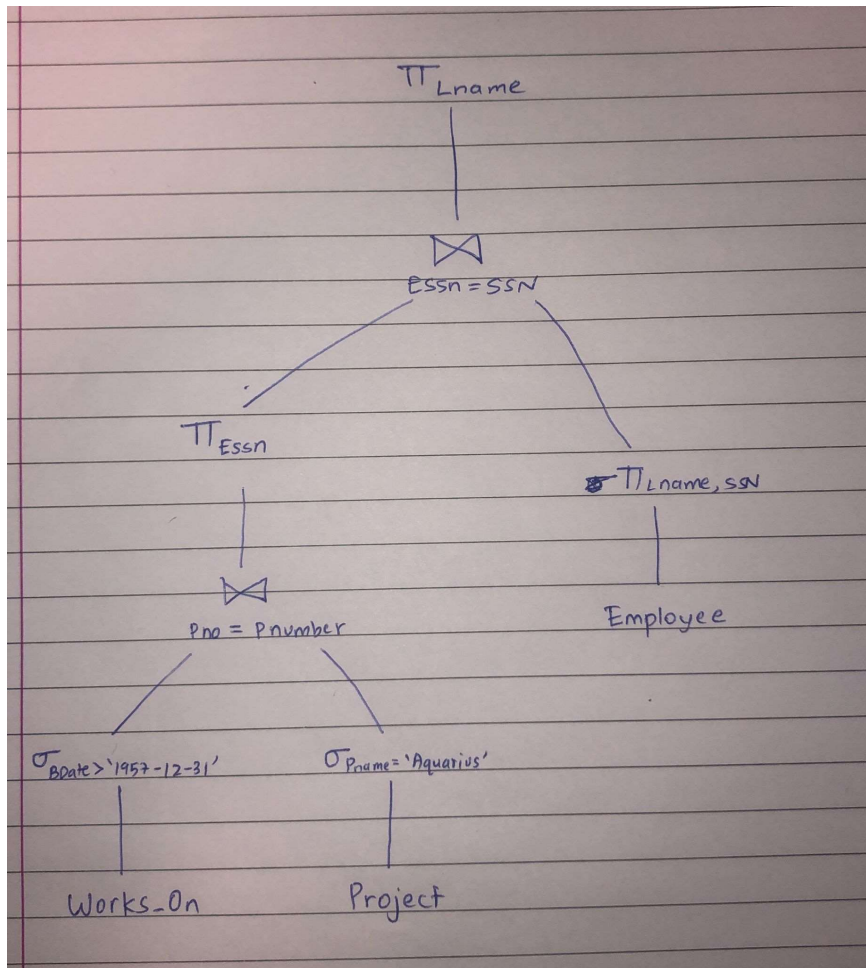 π Lname
⋈
Essn = SSN
π Essn
π Lname, SSN
⋈
Pno = Pnumber
Employee
σ BDate > '1957-12-31'
σ Pname = 'Aquarius'
Works_On
Project